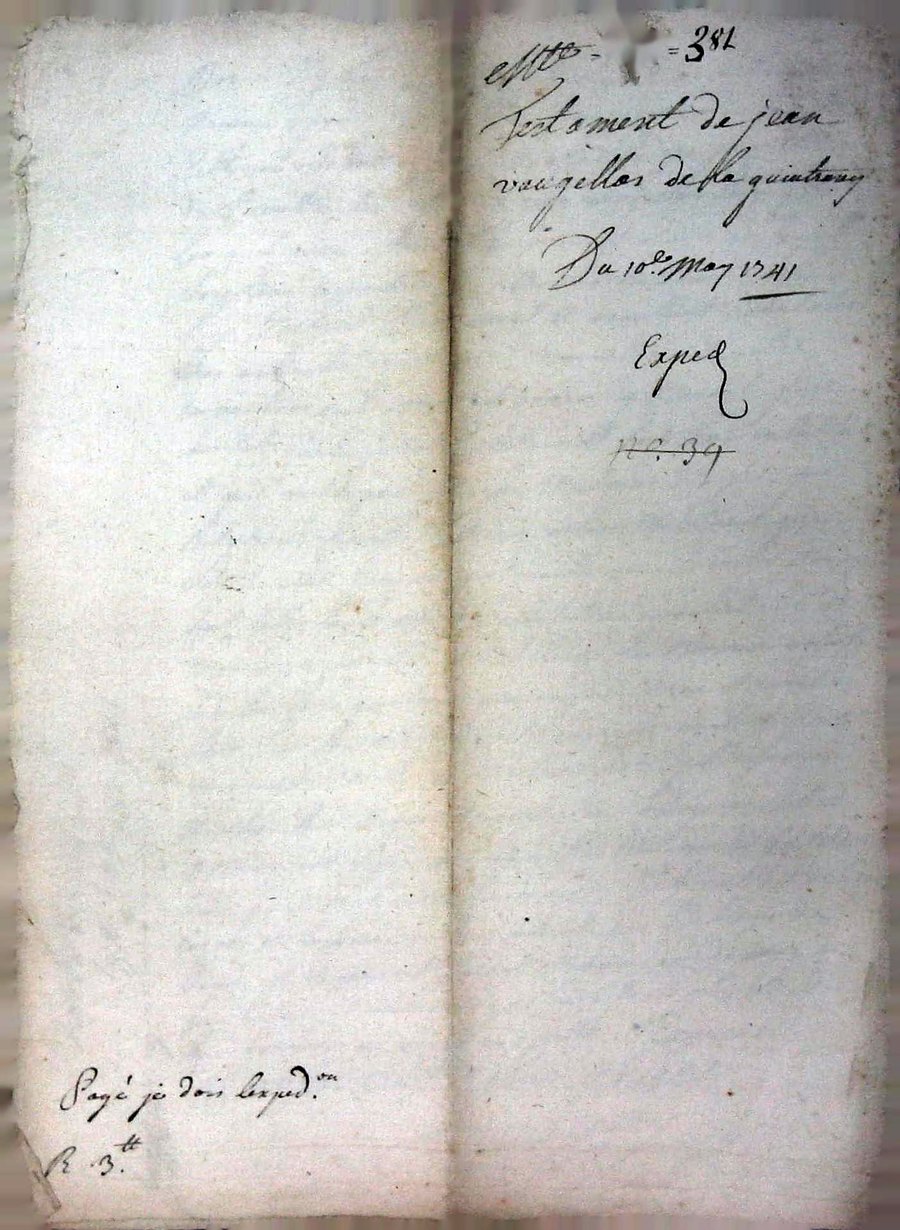 Mtte = = 381
Testament de jean
vaugellas de la quintrany
Du 10e May 1741
Exped
no. 39
Payé je dois lexped.on
R 3.tt